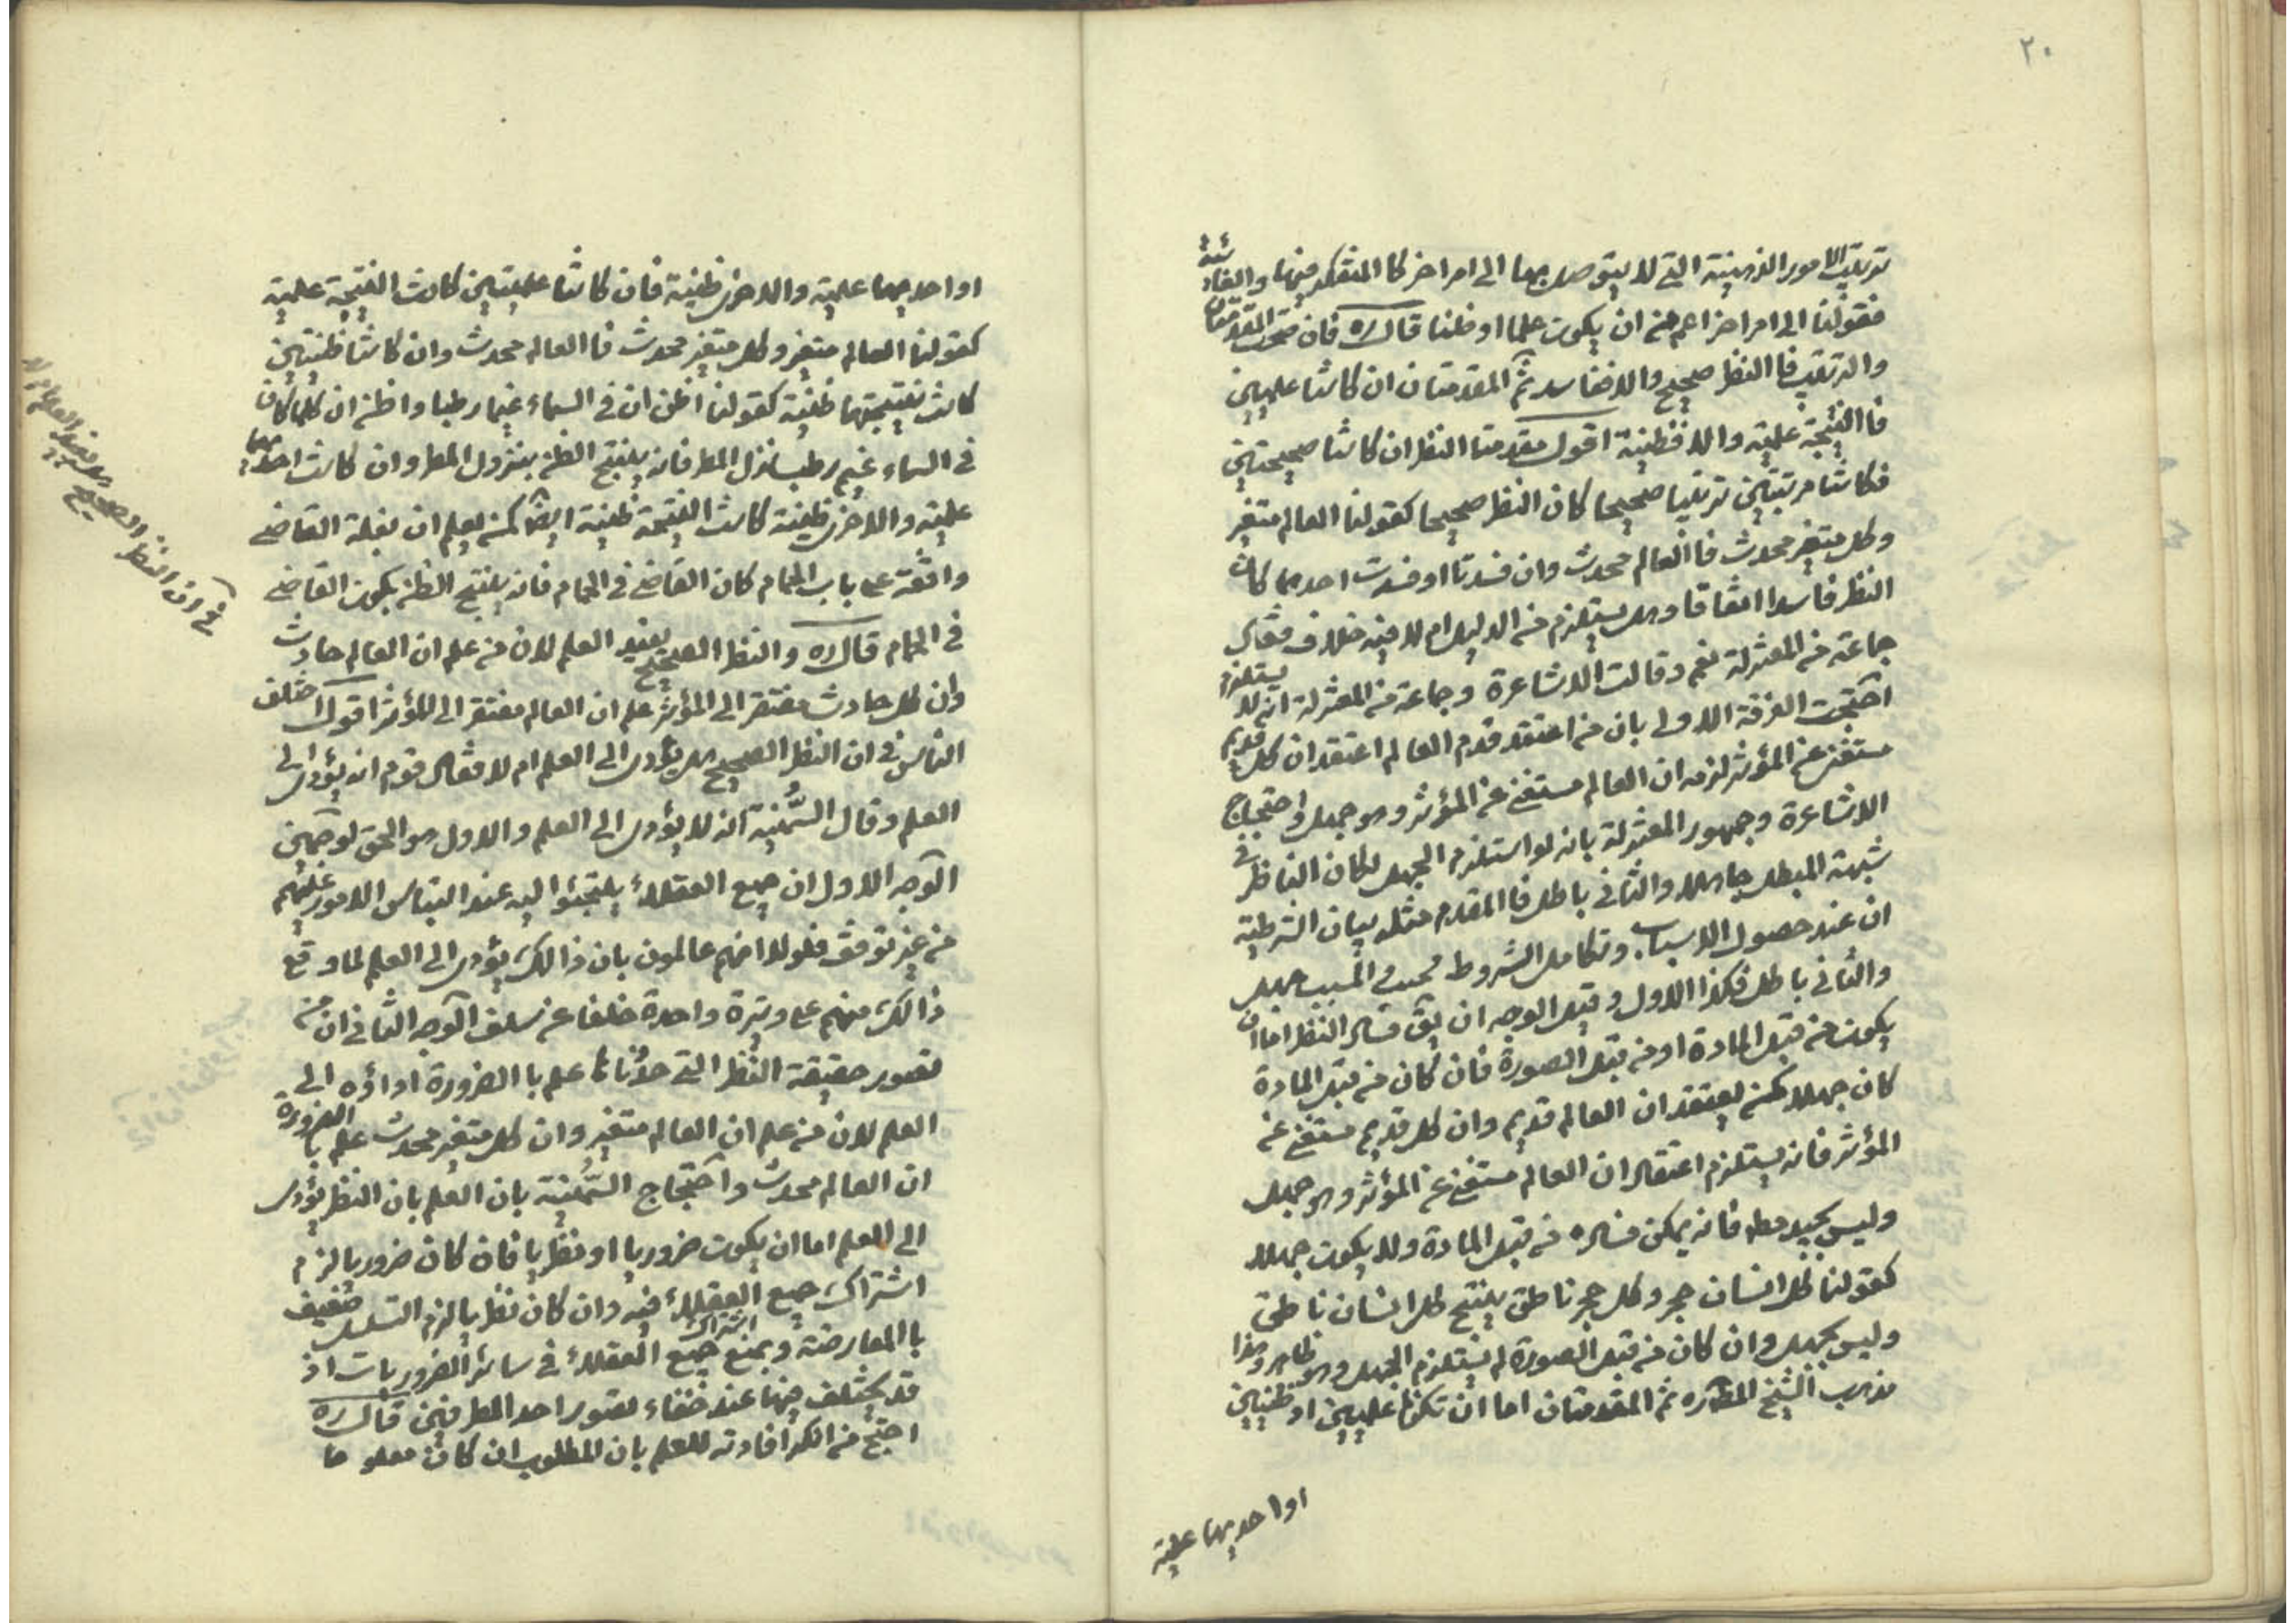 ٢٠
ترتيب الامور الذهنية التي لا يتوصل بها الى امر اخر كا المتفكر فيها والفائدة
فقولنا الى امر اخر اعم من ان يكون علما او ظنا قال ره فان صحت المقدمتان
والترتيب فا النظر صحيح والا ففاسد ثم المقدمتان ان كانتا علميتين
فا النتيجة علمية والا فظنية اقول مقدمتا النظر ان كانتا صحيحتين
فكانتا مرتبتين ترتيبا صحيحا كان النظر صحيحا كقولنا العالم متغير
وكل متغير محدث فا العالم محدث وان فسدتا او فسدت احديهما كان
النظر فاسدا اتفاقا وهل يستلزم من الدليل ام لا فيه خلاف فقال
جماعة من المعتزلة نعم وقالت الاشاعرة وجماعة من المعتزلة انه لا يستلزم
احتجت الفرقة الاولى بان من اعتقد قدم العالم اعتقد ان كل قديم
مستغن عن المؤثر لزمه ان العالم مستغن عن المؤثر وهو جهل واحتجاج
الاشاعرة وجمهور المعتزلة بانه لو استلزم الجهل لكان الناظر في
شبهة المبطل جاهلا والثاني باطل فا المقدم مثله بيان الشرطية
ان عند حصول الاسباب وتكامل الشروط يجب المسبب جهل
والثاني باطل فكذا الاول وقيل الوجه ان يق فساد النظر اما ان
يكون من قبل المادة او من قبل الصورة فان كان من قبل المادة
كان جهلا كمن يعتقد ان العالم قديم وان كل قديم مستغن عن
المؤثر فانه يستلزم اعتقاد ان العالم مستغن عن المؤثر وهو جهل
وليس بجيد مط فانه يمكن فساده من قبل المادة ولا يكون جهلا
كقولنا كل انسان حجر وكل حجر ناطق ينتج كل انسان ناطق
وليس بجهل وان كان من قبل الصورة لم يستلزم الجهل وهو ظاهر وهذا
مذهب الشيخ المط ره ثم المقدمتان اما ان تكونا علميين او ظنيين
او احديهما علمية
او احديهما علمية والاخرى ظنية فان كانتا علميتين كانت النتيجة علمية
كقولنا العالم متغير وكل متغير محدث فا العالم محدث وان كانتا ظنيتين
كانت نتيجتهما ظنية كقولنا اظن ان في السماء غيما رطبا واظن ان كلما كان
في السماء غيم رطب نزل المطر فانه ينتج الظن بنزول المطر وان كانت احديهما
علمية والاخرى ظنية كانت النتيجة ظنية ايضا كمن يعلم ان بغلة القاضي
واقفة على باب الحمام كان القاضي في الحمام فانه ينتج الظن بكون القاضي
في الحمام قال ره والنظر الصحيح يفيد العلم لان من علم ان العالم حادث
وان كل حادث مفتقر الى المؤثر علم ان العالم مفتقر الى المؤثر اقول اختلف
الناس في ان النظر الصحيح هل يؤدى الى العلم ام لا فقال قوم انه يؤدى الى
العلم وقال السُّمنية انه لا يؤدى الى العلم والاول هو الحق لوجهين
الوجه الاول ان جميع العقلاء يلتجئوا اليه عند التباس الامور عليهم
من غير توقف فلولا انهم عالمون بان ذالك يؤدى الى العلم لما وقع
ذالك منهم على وتيرة واحدة خلفا عن سلف الوجه الثاني ان من
تصور حقيقة النظر التي حدّناها علم با الضرورة اداؤه الى
العلم لان من علم ان العالم متغير وان كل متغير محدث علم با الضرورة
ان العالم محدث واحتجاج السُّمنية بان العلم بان النظر يؤدى
الى العلم اما ان يكون ضروريا او نظريا فان كان ضروريا لزم
اشتراك جميع العقلاء فيه وان كان نظريا لزم التسلسل ضعيف
با المعارضة وبمنع اشتراك جميع العقلاء في سائر الضروريات اذ
قد يختلف فيها عند خفاء تصور احد الطرفين قال ره
احتج من انكر افادته للعلم بان المطلوب ان كان معلوما
في ان النظر الصحيح هل يفيد العلم ام لا